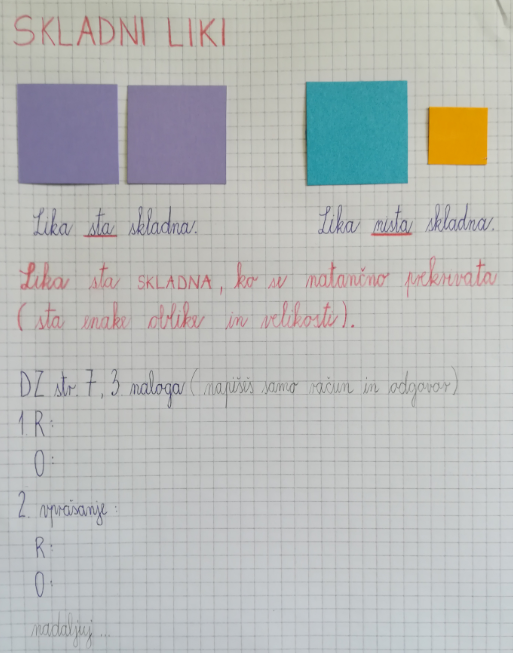 SKLADNI LIKI
Lika sta skladna. Lika nista skladna.
Lika sta SKLADNA, ko se natančno prekrivata
(sta enake oblike in velikosti).
DZ str. 7, 3. naloga (napišiš samo račun in odgovor)
1. R:
O:
2. vprašanje:
R:
O:
nadaljuj...